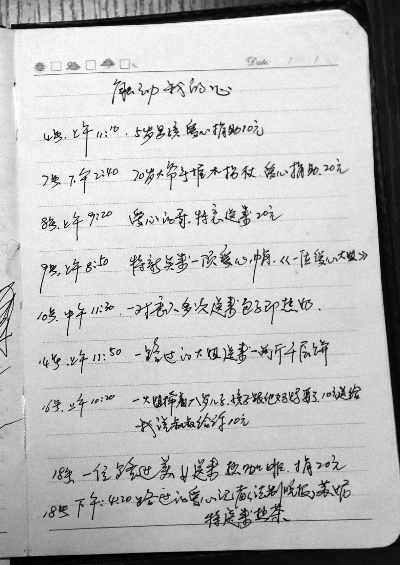 Date: / /
触动我的心
4号.上午11:10. 5岁男孩爱心捐助10元
7号.下午2:40 70岁大爷手握木拐杖.爱心捐助.20元
8号.上午9:20 爱心的哥.特意送来20元
9号.上午8:50 特意送来一顶爱心帽.《一位爱心大姐》
10号.中午11:30. 一对恋人多次送来包子即热奶.
14号.上午11:50 一路过的大姐送来一两斤千层饼
16号.上午10:20 一大姐带着八岁儿子.孩子跟他妈妈要了10元送给
我说叔叔给你10元
18号 一位路过美女送来热咖啡.捐20元
18号下午:4:20路过的爱心记者(法制晚报)苏妮
特送来热茶.